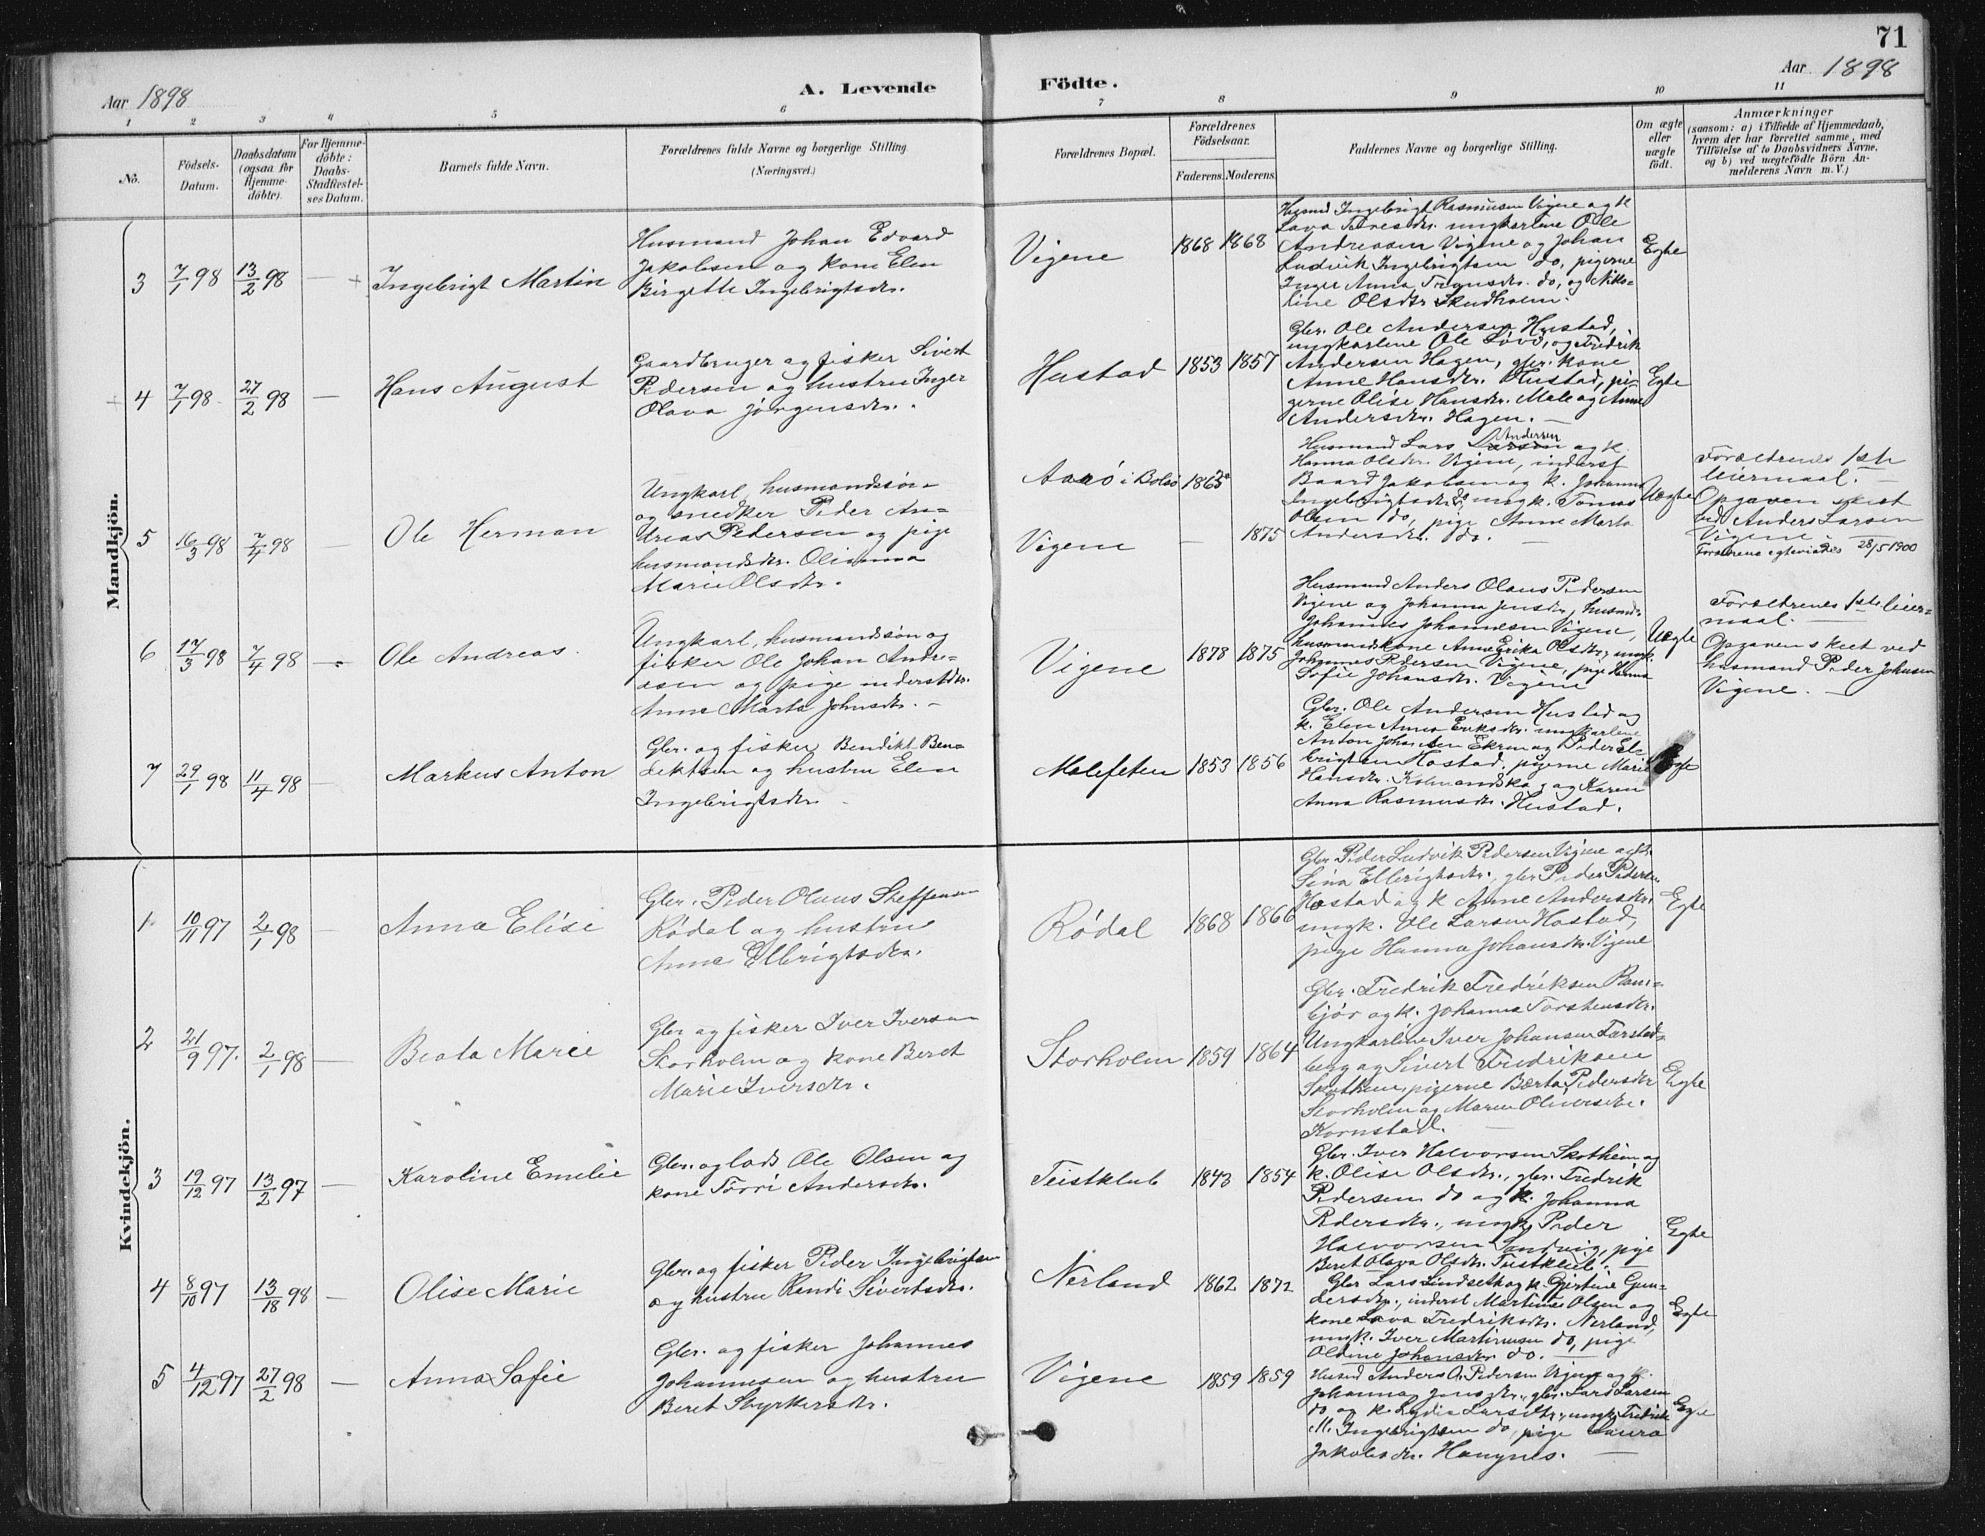 71
Aar 1898
A. Levende
Födte.
Aar 1898
1 2 3 4 5 6 7 8 9 10 11
No.
Födsels-
Datum.
Daabsdatum
(ogsaa for
Hjemme-
döbte).
For Hjemme-
döbte:
Daabs-
Stadfæstel-
ses Datum.
Barnets fulde Navn.
Forældrenes fulde Navne og borgerlige Stilling
(Næringsvei.)
Forældrenes Bopæl.
Forældrenes
Födselsaar.
Faderens. Moderens.
Faddernes Navne og borgerlige Stilling.
Om ægte
eller
uægte
födt.
Anmærkninger
(saasom: a) i Tilfælde af Hjemmedaab,
hvem der har forrettet samme, med
Tilföielse af to Daabsvidners Navne,
og b) ved uægtefödte Börn An-
melderens Navn m. V.)
Mandkjön.
3 7/1 98 13/2 98 — Ingebrigt Martin
Husmand Johan Edvard
Jakobsen og kone Elen
Birgette Ingebrigtsdtr.
Vigene 1868 1868
Husmd Ingebrigt Rasmusen Vigene og k
Lava ungkarlene Ole
Andreasen Vigene og Johan
Ludvik Ingebrigtsen do, pigerne
Inger Anna do, og Niko-
line Olsdtr Skudholm.
Egte
4 7/1 98 27/2 98 — Hans August
Gaardbruger og fisker Sivert
Pedersen og hustru Inger
Olava Jörgensdtr.
Hustad 1853 1857
Gbr. Ole Andersen Hustad,
ungkarlene Ole og Fredrik
Andersen Hagen, gbr. kone
Anne Hansdtr. Hustad, pi-
gerne Olise Hansdtr. Male og Anne
Andersdtr. Hagen. —
Egte
5 16/3 98 7/4 98 — Ole Herman
Ungkarl, husmandssön
og snedker Peder An-
dreas Pedersen og pige
husmandsdtr. Olianna
Marie Olsdtr.
Aarö i Bolsö 1863
Vigene — 1875
Husmand Lars Larsen Andersen og k.
Hanna Olsdtr. Vigene, inderst
Baard Jakobsen og k. Johanna
Ingebrigtsdtr do, ungk. Tomas
Olsen do, pige Anne Marta
Andersdtr. do. —
Uegte
Forældrenes 1ste
leiermaal. —
Opgaven skeet
ved Anders Larsen
Vigene. —
Forældrene egteviedes 28/5 1900
6 17/3 98 7/4 98 — Ole Andreas.
Ungkarl, husmandssön og
fisker Ole Johan Andre-
asen og pige inderstdtr.
Anne Marta Johnsdtr. —
Vigene 1878 1875
Husmand Anders Olaus Pedersen
Vigene og Johanna Jensdtr, husmd.
Johannes Johannesen Vigene,
husmandskone Anne Erika Olsdtr, ungk.
Johannes Pedersen Vigene, pige Hanna
Sofie Johansdtr. Vigene
Uegte
Forældrenes 1ste leier-
maal. —
Opgaven skeet ved
husmand Peder Johnsen
Vigene. —
7 29/1 98 11/4 98 — Markus Anton
Gbr. og fisker Bendikt Ben-
diktsen og hustru Elen
Ingebrigtsdtr. —
Malefeten 1853 1856
Gbr. Ole Andersen Hustad og
k. Elen Anna Eriksdtr. ungkarlene
Anton Johansen Ekren og Peder El-
brigtsen Hostad, pigerne Marie
Hansdtr. og Karen
Anna Rasmusdtr. Hustad.
Egte
Kvindekjön.
1 10/11 97 2/1 98 — Anna Elise
Gbr. Peder Olaus Steffensen
Rödal og hustru
Anne Elbrigtsdtr.
Rödal 1868 1866
Gbr Peder Ludvik Pedersen Vigene og k.
Sina Elbrigtsdtr., gbr Peder Pedersen
Hostad og k Anne Andersdtr.
ungk. Ole Larsen Hostad,
pige Hanna Johansdtr. Vigene
Egte
2 21/9 97. 2/1 98 — Beata Marie
Gbr og fisker Iver Iversen
Storholm og kone Beret
Marie Iversdtr.
Storholm 1859 1864
Gbr. Fredrik Fredriksen Ram-
björ og k. Johanna Torstensdtr.
Ungkarlene Iver Johansen Farstad-
berg og Sivert Fredriksen
Skotheim, pigerne Bærta Pedersdtr
Storholm og Maren Oliversdtr.
Kornstad. —
Egte
3 19/12 97 13/2 97 — Karoline Emelie
Gbr. og lods Ole Olsen og
kone Törri Andersdtr.
Teistklub 1843 1854
Gbr. Iver Halvorsen Skotheim og
k. Olise Olsdtr., gbr. Fredrik
Pedersen do og k. Johanna
Pedersdtr., ungk Peder
Halvorsen Sandvig, pige
Beret Olava Olsdtr. Teistklub. —
Egte
4 8/10 97 13/18 98 — Olise Marie
Gbr. og fisker Peder Ingebrigtsen
og hustru Randi Sivertsdtr.
Nerland 1862 1872
Gbr Lars Lindseth og k. Gjertine Gun-
dersdtr., inderst Martinus Olsen og
kone Lava Fredriksdtr. Nerland,
ungk. Iver Martinusen do, pige
Oldine Johansdtr do. —
Egte
5 4/12 97 27/2 98 — Anna Sofie
Gbr. og fisker Johannes
Johannesen og hustru
Beret Styrkersdtr.
Vigene 1859 1859
Husmd Anders O. Pedersen Vigene og k.
Johanna Jensdtr., gbr. Lars Larsen
do og k. Lydia Larsdtr., ungk. Fredrik
M. Ingebrigtsen do, pige Laura
Jakobsdtr. Hangnes. —
Egte